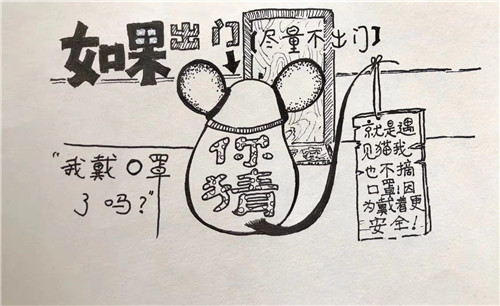 如果出门【尽量不出门】
你猜
"我戴口罩
了吗?"
就是遇
见猫我
也不摘
口罩!因
为戴着更
安全!